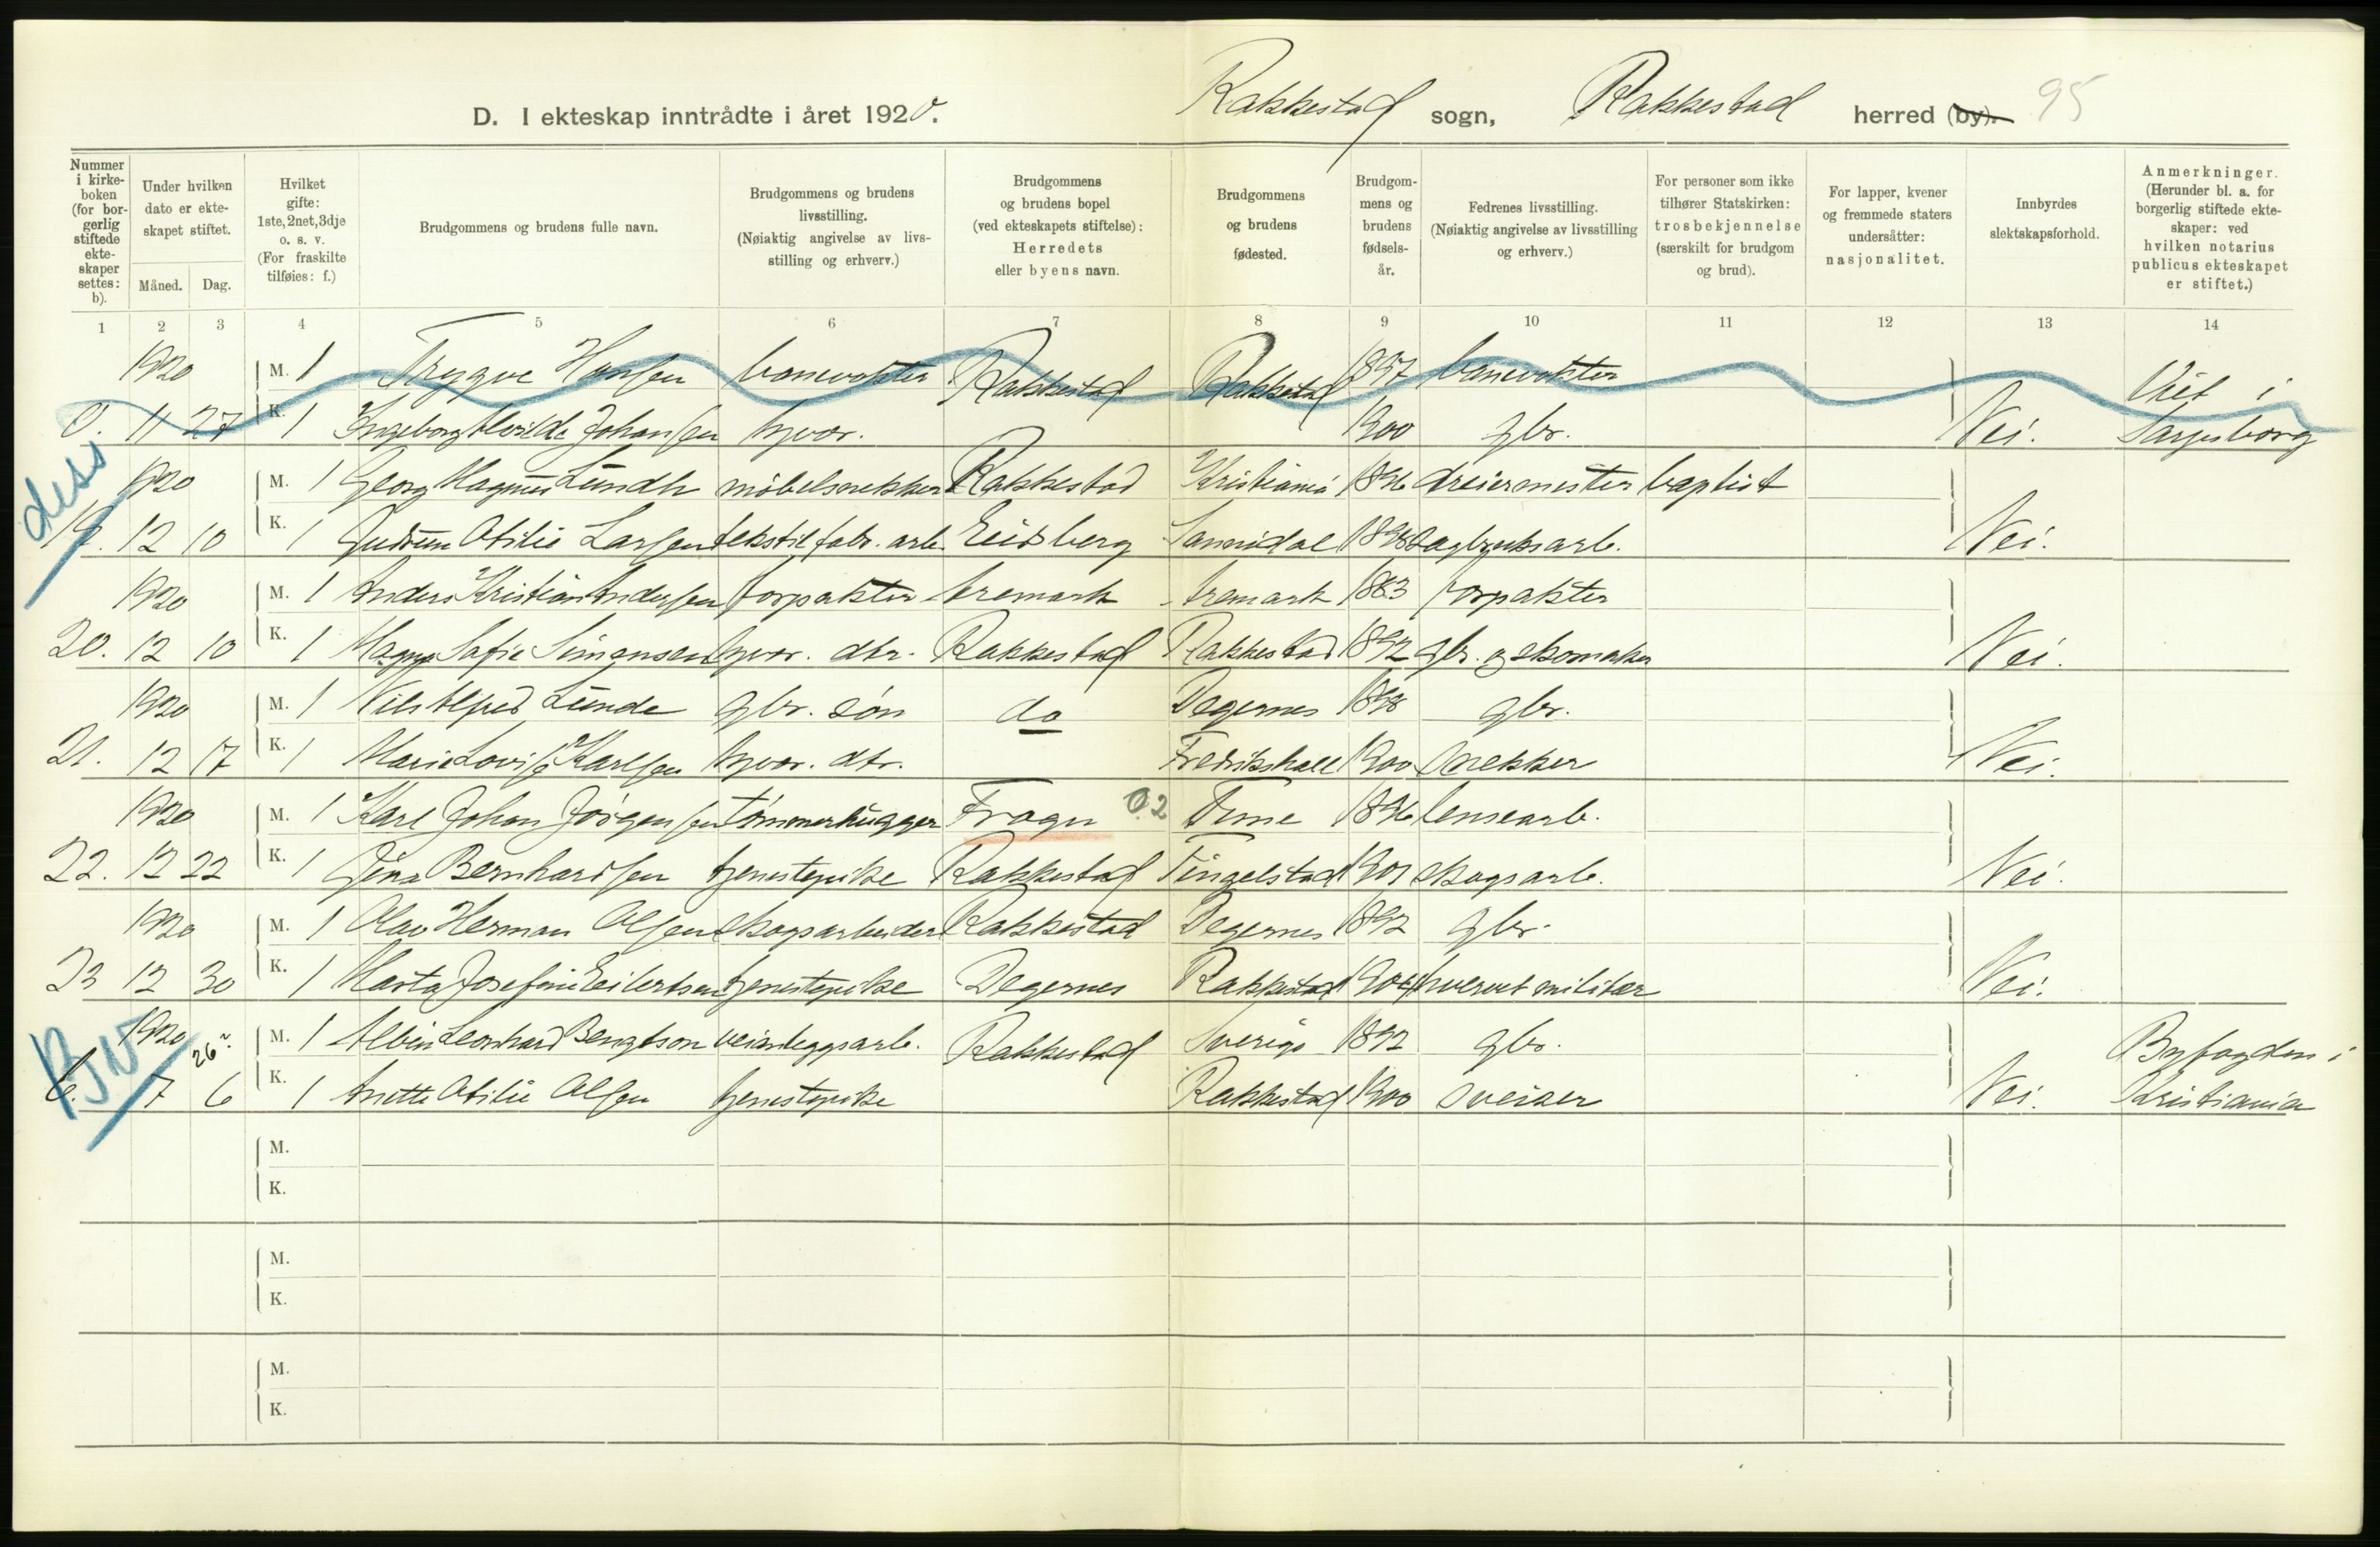 D. I ekteskap inntrådte i året 1920. Rakkestad sogn, Rakkestad herred (by). 95
Nummer i kirkeboken (for borgerlig stiftede ekteskaper settes: b).
Under hvilken dato er ekteskapet stiftet.
Måned. Dag.
Hvilket gifte: 1ste, 2net, 3dje o. s. v. (For fraskilte tilføies: f.)
Brudgommens og brudens fulle navn.
Brudgommens og brudens livsstilling. (Nøiaktig angivelse av livsstilling og erhverv.)
Brudgommens og brudens bopel (ved ekteskapets stiftelse): Herredets eller byens navn.
Brudgommens og brudens fødested.
Brudgommens og brudens fødselsår.
Fedrenes livsstilling. (Nøiaktig angivelse av livsstilling og erhverv.)
For personer som ikke tilhører Statskirken: trosbekjennelse (særskilt for brudgom og brud).
For lapper, kvener og fremmede staters undersåtter: nasjonalitet.
Innbyrdes slektskapsforhold.
Anmerkninger. (Herunder bl. a. for borgerlig stiftede ekteskaper: ved hvilken notarius publicus ekteskapet er stiftet.)
1 2 3 4 5 6 7 8 9 10 11 12 13 14
1920 M. 1 Trygve Hansen banevokter Rakkestad Rakkestad 1897 banevokter Viet i
0. 11 27 K. 1 Ingeborg Alvilde Johansen hjvær. 1900 gbr. Nei. Sarpsborg
diss
1920 M. 1 Georg Magnus Lundh möbelsnekker Rakkestad Kristiania 1896 dreiermester baptist
19. 12 10 K. 1 Gudrun Otilie Larsen tekstilfabr. arb. Eidsberg Sannidal 1898 sagbruksarb. Nei.
1920 M. 1 Anders Kristian Andersen forpakter Aremark Aremark 1883 forpakter
20. 12 10 K. 1 Magna Sofie Simensen hjvær. dtr. Rakkestad Rakkestad 1892 gbr. og skomaker Nei.
1920 M. 1 Nils Alfred Lunde gbr. søn do Degernes 1898 gbr.
21. 12 17 K. 1 Marie Lovise Karlsen hjvær. dtr. Fredrikshall 1900 snekker Nei.
1920 M. 1 Karl Johan Jörgensen tömmerhugger Frogn 0.2 Tune 1896 lensearb.
22. 12 22 K. 1 Jina Bernhardsen tjenestepike Rakkestad Tingelstad 1901 skogsarb. Nei.
1920 M. 1 Olav Herman Olsen skogsarbeider Rakkestad Degernes 1892 gbr.
23 12 30 K. 1 Marta Josefine Eilertsen tjenestepike Degernes Rakkestad 1901 hvervet militær Nei.
BN
1920 26 M. 1 Albin Leonhard Bengtson veianleggsarb. Rakkestad Sverige 1892 gbr. Byfogden i
b. 7 6 K. 1 Anette Otilie Olsen tjenestepike Rakkestad 1900 sveiser Nei. Kristiania
M.
K.
M.
K.
M.
K.